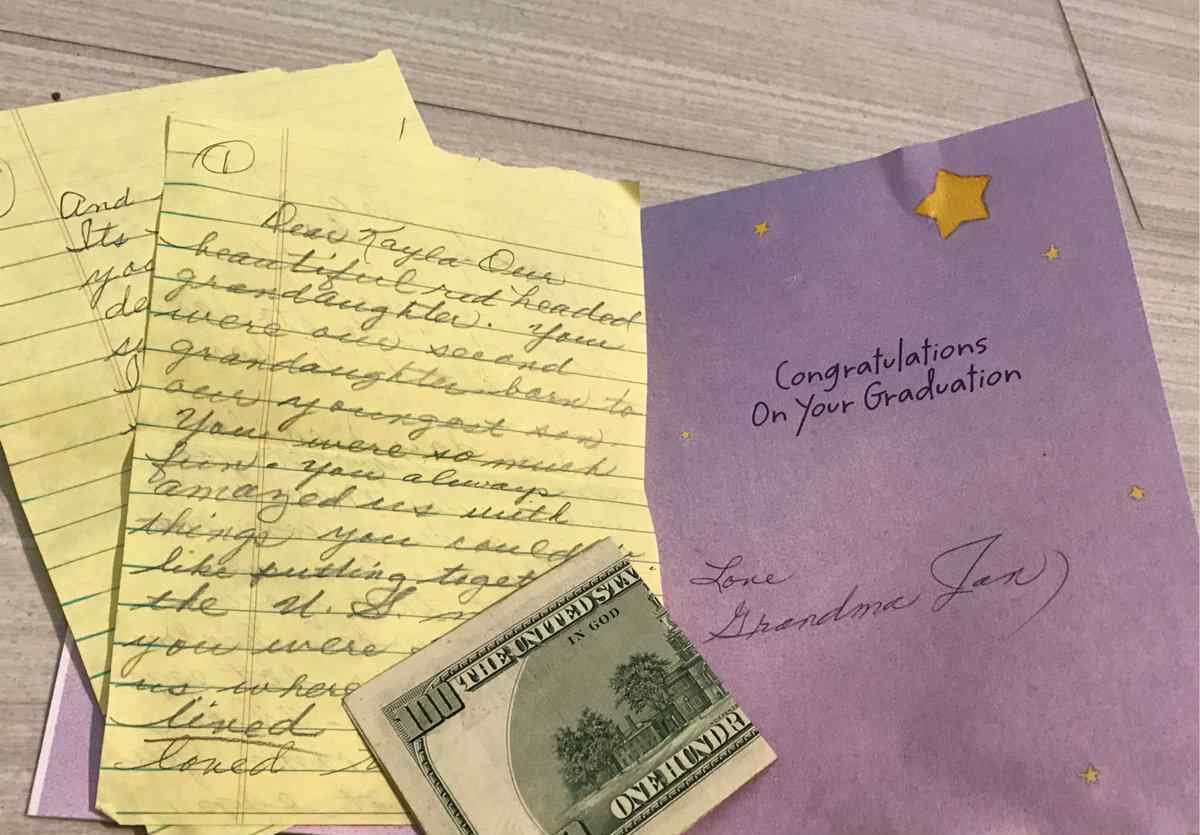 And
Its
you
de
I
1
Dear Kayla Our
beautiful red headed
grandaughter. You
were our second
grandaughter born to
our youngest son
You were so much
fun. you always
amazed us with
things you could
like putting toget
the U.S.
you were
us where
lived
loved
Congratulations
On Your Graduation
Love
Grandma Jan
100
THE UNITED STA
IN GOD
ONE HUNDR